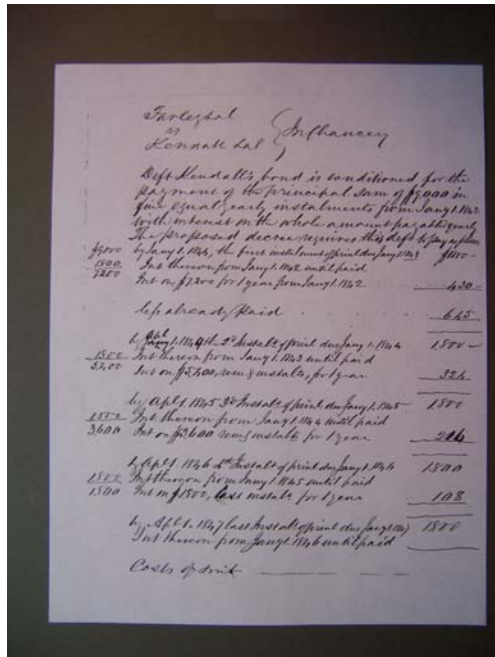 Farley & al
vs
Kendall & al } In Chancery
Deft Kendall's bond is conditioned for the
payment of the principal sum of $9,000 in
five equal yearly instalments from Jany 1. 1842
with interest on the whole amount payable yearly
The proposed decree requires this deft to pay as follows
$9,000 by Jany 1. 1844, the first instalment of princl due Jany 1. 1843 $1800 -
1800 Int thereon from Jany 1. 1842 until paid
7200 Int on $7,200 for 1 year from Jany 1. 1842 430 -
less already paid 645
by Apl 1. 1844 the 2d Instalt of princl due Jany 1. 1844 1,800 -
1800 Int thereon from Jany 1. 1843 until paid
5400 Int on $5,400, instalts, for 1 year 324
by Apl 1. 1845 3d Instalt of princl due Jany 1. 1845 1800
1800 Int thereon from Jany 1. 1844 until paid
3600 Int on $3,600 instalts for 1 year 216
by Apl 1. 1846 4th Instalt of princl due Jany 1. 1846 1800
1800 Int thereon from Jany 1. 1845 until paid
1800 Int on $1800, last instalt for 1 year 108
by Apl 1. 1847 last Instalt of princl due Jany 1. 1847 1800
Int thereon from Jany 1. 1846 until paid
Costs of suit